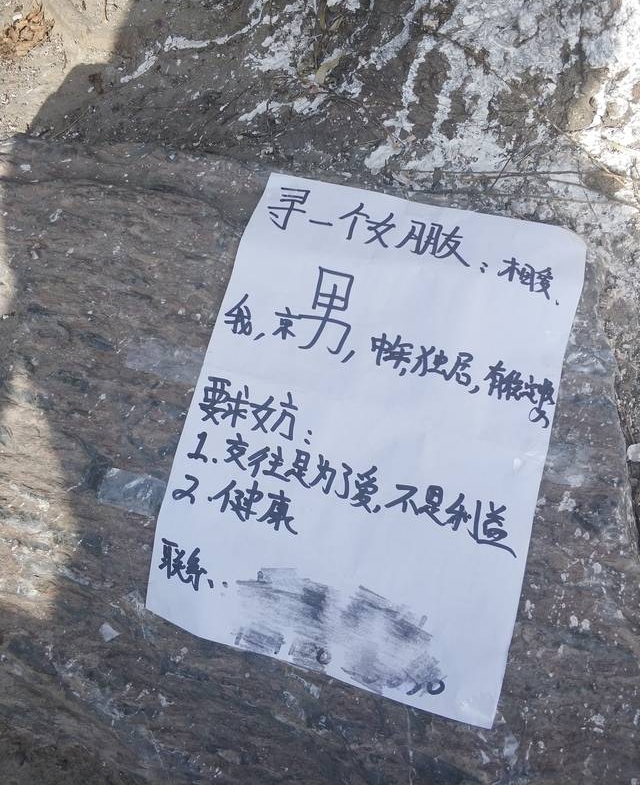 寻一个女朋友：相爱、
我，京男，中年，独居，有稳定收入
要求女方：
1.交往是为了爱，不是利益
2.健康
联系：